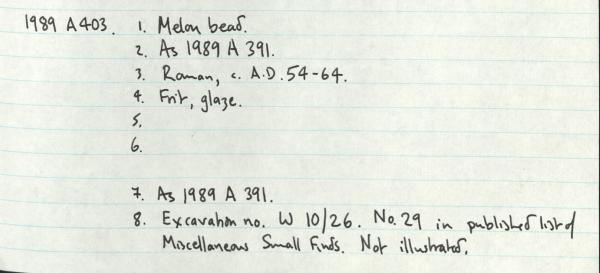 1989 A 403. 1. Melon bead.
2. As 1989 A 391.
3. Roman, c. A.D. 54-64.
4. Frit, glaze.
5.
6.
7. As 1989 A 391.
8. Excavation no. W 10/26. No. 29 in published list of
Miscellaneous Small Finds. Not illustrated.